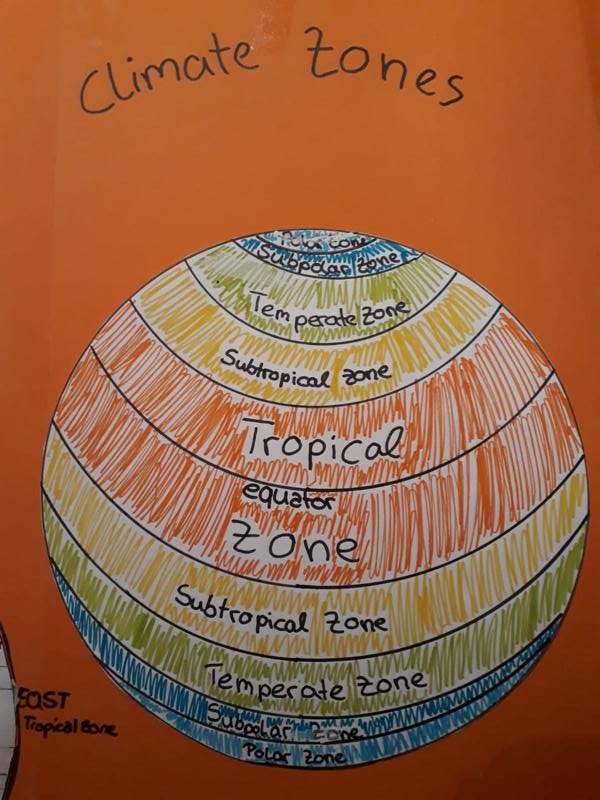 Climate Zones
Polar zone
Subpolar zone
Temperate zone
Subtropical zone
Tropical
equator
zone
Subtropical zone
Temperate zone
Subpolar zone
Polar zone
EAST
Tropical zone